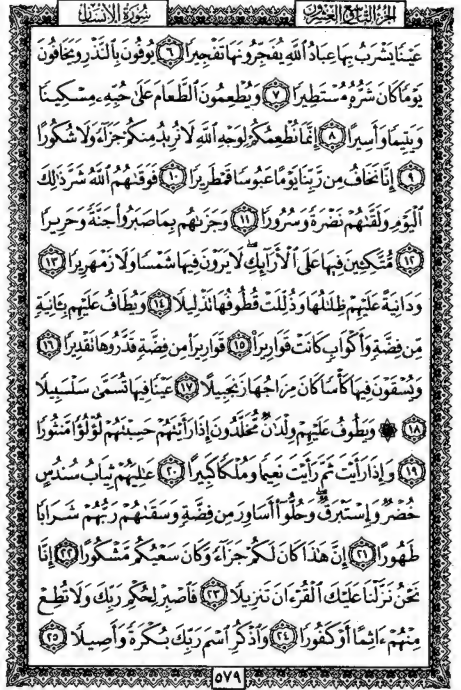 الجزء التاسع والعشرون
سورة الإنسان
عَيْنًا يَشْرَبُ بِهَا عِبَادُ اللَّهِ يُفَجِّرُونَهَا تَفْجِيرًا ٦ يُوفُونَ بِالنَّذْرِ وَيَخَافُونَ
يَوْمًا كَانَ شَرُّهُ مُسْتَطِيرًا ٧ وَيُطْعِمُونَ الطَّعَامَ عَلَىٰ حُبِّهِ مِسْكِينًا
وَيَتِيمًا وَأَسِيرًا ٨ إِنَّمَا نُطْعِمُكُمْ لِوَجْهِ اللَّهِ لَا نُرِيدُ مِنكُمْ جَزَاءً وَلَا شُكُورًا
٩ إِنَّا نَخَافُ مِن رَّبِّنَا يَوْمًا عَبُوسًا قَمْطَرِيرًا ١٠ فَوَقَىٰهُمُ اللَّهُ شَرَّ ذَٰلِكَ
الْيَوْمِ وَلَقَّىٰهُمْ نَضْرَةً وَسُرُورًا ١١ وَجَزَىٰهُم بِمَا صَبَرُوا جَنَّةً وَحَرِيرًا
١٢ مُّتَّكِئِينَ فِيهَا عَلَى الْأَرَائِكِ ۖ لَا يَرَوْنَ فِيهَا شَمْسًا وَلَا زَمْهَرِيرًا ١٣
وَدَانِيَةً عَلَيْهِمْ ظِلَٰلُهَا وَذُلِّلَتْ قُطُوفُهَا تَذْلِيلًا ١٤ وَيُطَافُ عَلَيْهِم بِـَٔانِيَةٍ
مِّن فِضَّةٍ وَأَكْوَابٍ كَانَتْ قَوَارِيرَا۠ ١٥ قَوَارِيرَا۟ مِن فِضَّةٍ قَدَّرُوهَا تَقْدِيرًا ١٦
وَيُسْقَوْنَ فِيهَا كَأْسًا كَانَ مِزَاجُهَا زَنجَبِيلًا ١٧ عَيْنًا فِيهَا تُسَمَّىٰ سَلْسَبِيلًا
١٨ ۞ وَيَطُوفُ عَلَيْهِمْ وِلْدَٰنٌ مُّخَلَّدُونَ إِذَا رَأَيْتَهُمْ حَسِبْتَهُمْ لُؤْلُؤًا مَّنثُورًا
١٩ وَإِذَا رَأَيْتَ ثَمَّ رَأَيْتَ نَعِيمًا وَمُلْكًا كَبِيرًا ٢٠ عَٰلِيَهُمْ ثِيَابُ سُندُسٍ
خُضْرٌ وَإِسْتَبْرَقٌ ۖ وَحُلُّوا أَسَاوِرَ مِن فِضَّةٍ وَسَقَىٰهُمْ رَبُّهُمْ شَرَابًا
طَهُورًا ٢١ إِنَّ هَٰذَا كَانَ لَكُمْ جَزَاءً وَكَانَ سَعْيُكُم مَّشْكُورًا ٢٢ إِنَّا
نَحْنُ نَزَّلْنَا عَلَيْكَ الْقُرْءَانَ تَنزِيلًا ٢٣ فَاصْبِرْ لِحُكْمِ رَبِّكَ وَلَا تُطِعْ
مِنْهُمْ ءَاثِمًا أَوْ كَفُورًا ٢٤ وَاذْكُرِ اسْمَ رَبِّكَ بُكْرَةً وَأَصِيلًا ٢٥
٥٧٩